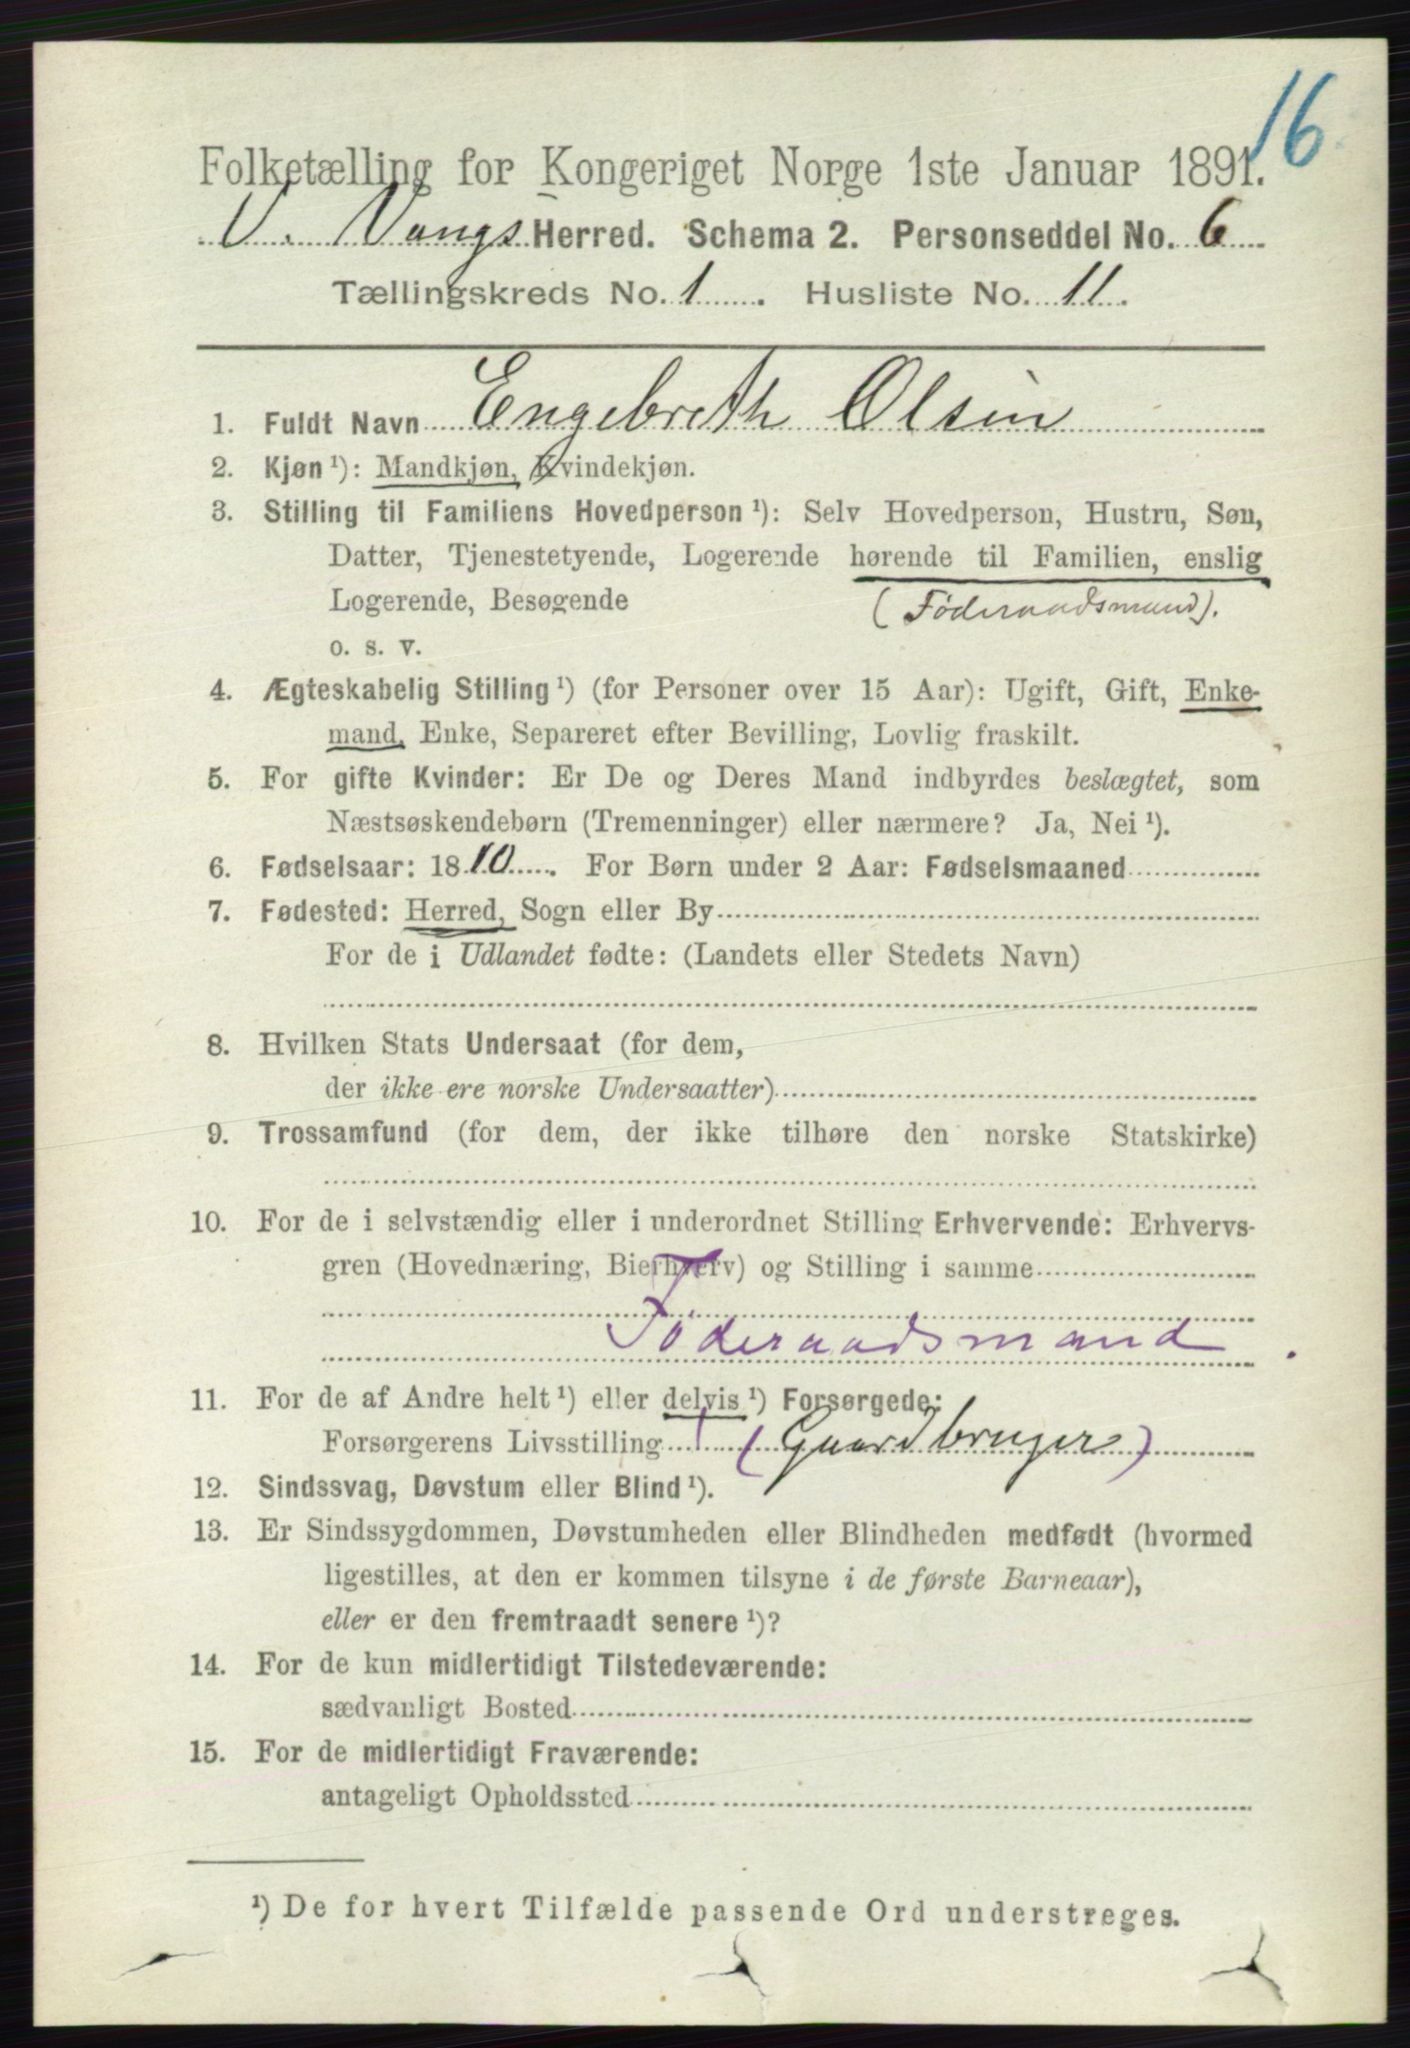 16
Folketælling for Kongeriget Norge 1ste Januar 1891.
V. Vangs Herred. Schema 2. Personseddel No. 6
Tællingskreds No. 1. Husliste No. 11.
1. Fuldt Navn Engebreth Olsen
2. Kjøn ¹): Mandkjøn, Kvindekjøn.
3. Stilling til Familiens Hovedperson ¹): Selv Hovedperson, Hustru, Søn,
Datter, Tjenestetyende, Logerende hørende til Familien, enslig
Logerende, Besøgende (Föderaadsmand).
o. s. v.
4. Ægteskabelig Stilling ¹) (for Personer over 15 Aar): Ugift, Gift, Enke-
mand, Enke, Separeret efter Bevilling, Lovlig fraskilt.
5. For gifte Kvinder: Er De og Deres Mand indbyrdes beslægtet, som
Næstsøskendebørn (Tremenninger) eller nærmere? Ja, Nei ¹).
6. Fødselsaar: 1810. For Børn under 2 Aar: Fødselsmaaned
7. Fødested: Herred, Sogn eller By
For de i Udlandet fødte: (Landets eller Stedets Navn)
8. Hvilken Stats Undersaat (for dem,
der ikke ere norske Undersaatter)
9. Trossamfund (for dem, der ikke tilhøre den norske Statskirke)
10. For de i selvstændig eller i underordnet Stilling Erhvervende: Erhvervs-
gren (Hovednæring, Bierhverv) og Stilling i samme
Föderaadsmand.
11. For de af Andre helt ¹) eller delvis ¹) Forsørgede:
Forsørgerens Livsstilling (Gaardbruger)
12. Sindssvag, Døvstum eller Blind ¹).
13. Er Sindssygdommen, Døvstumheden eller Blindheden medfødt (hvormed
ligestilles, at den er kommen tilsyne i de første Barneaar),
eller er den fremtraadt senere ¹)?
14. For de kun midlertidigt Tilstedeværende:
sædvanligt Bosted
15. For de midlertidigt Fraværende:
antageligt Opholdssted
¹) De for hvert Tilfælde passende Ord understreges.